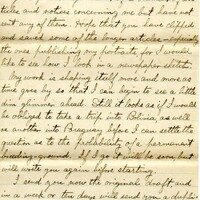 to be and notices concerning me but have not
sent any of them. I hope that you have clipped
and saved some of the longer articles - especially
the ones publishing my portraits, for I would
like to see how I look in a newspaper sketch.
My work is shaping itself more and more as
time goes by so that I can begin to see a little
dim glimmer ahead. Still it looks as if I would
be obliged to take a trip into Bolivia, as well
as another into Paraguay before I can settle the
question as to the probability of a permanent
heading-ground. If I go it will be soon, but
will write you again before starting.
I send you now the original draft, and
in a week or ten days will send you a dupli-